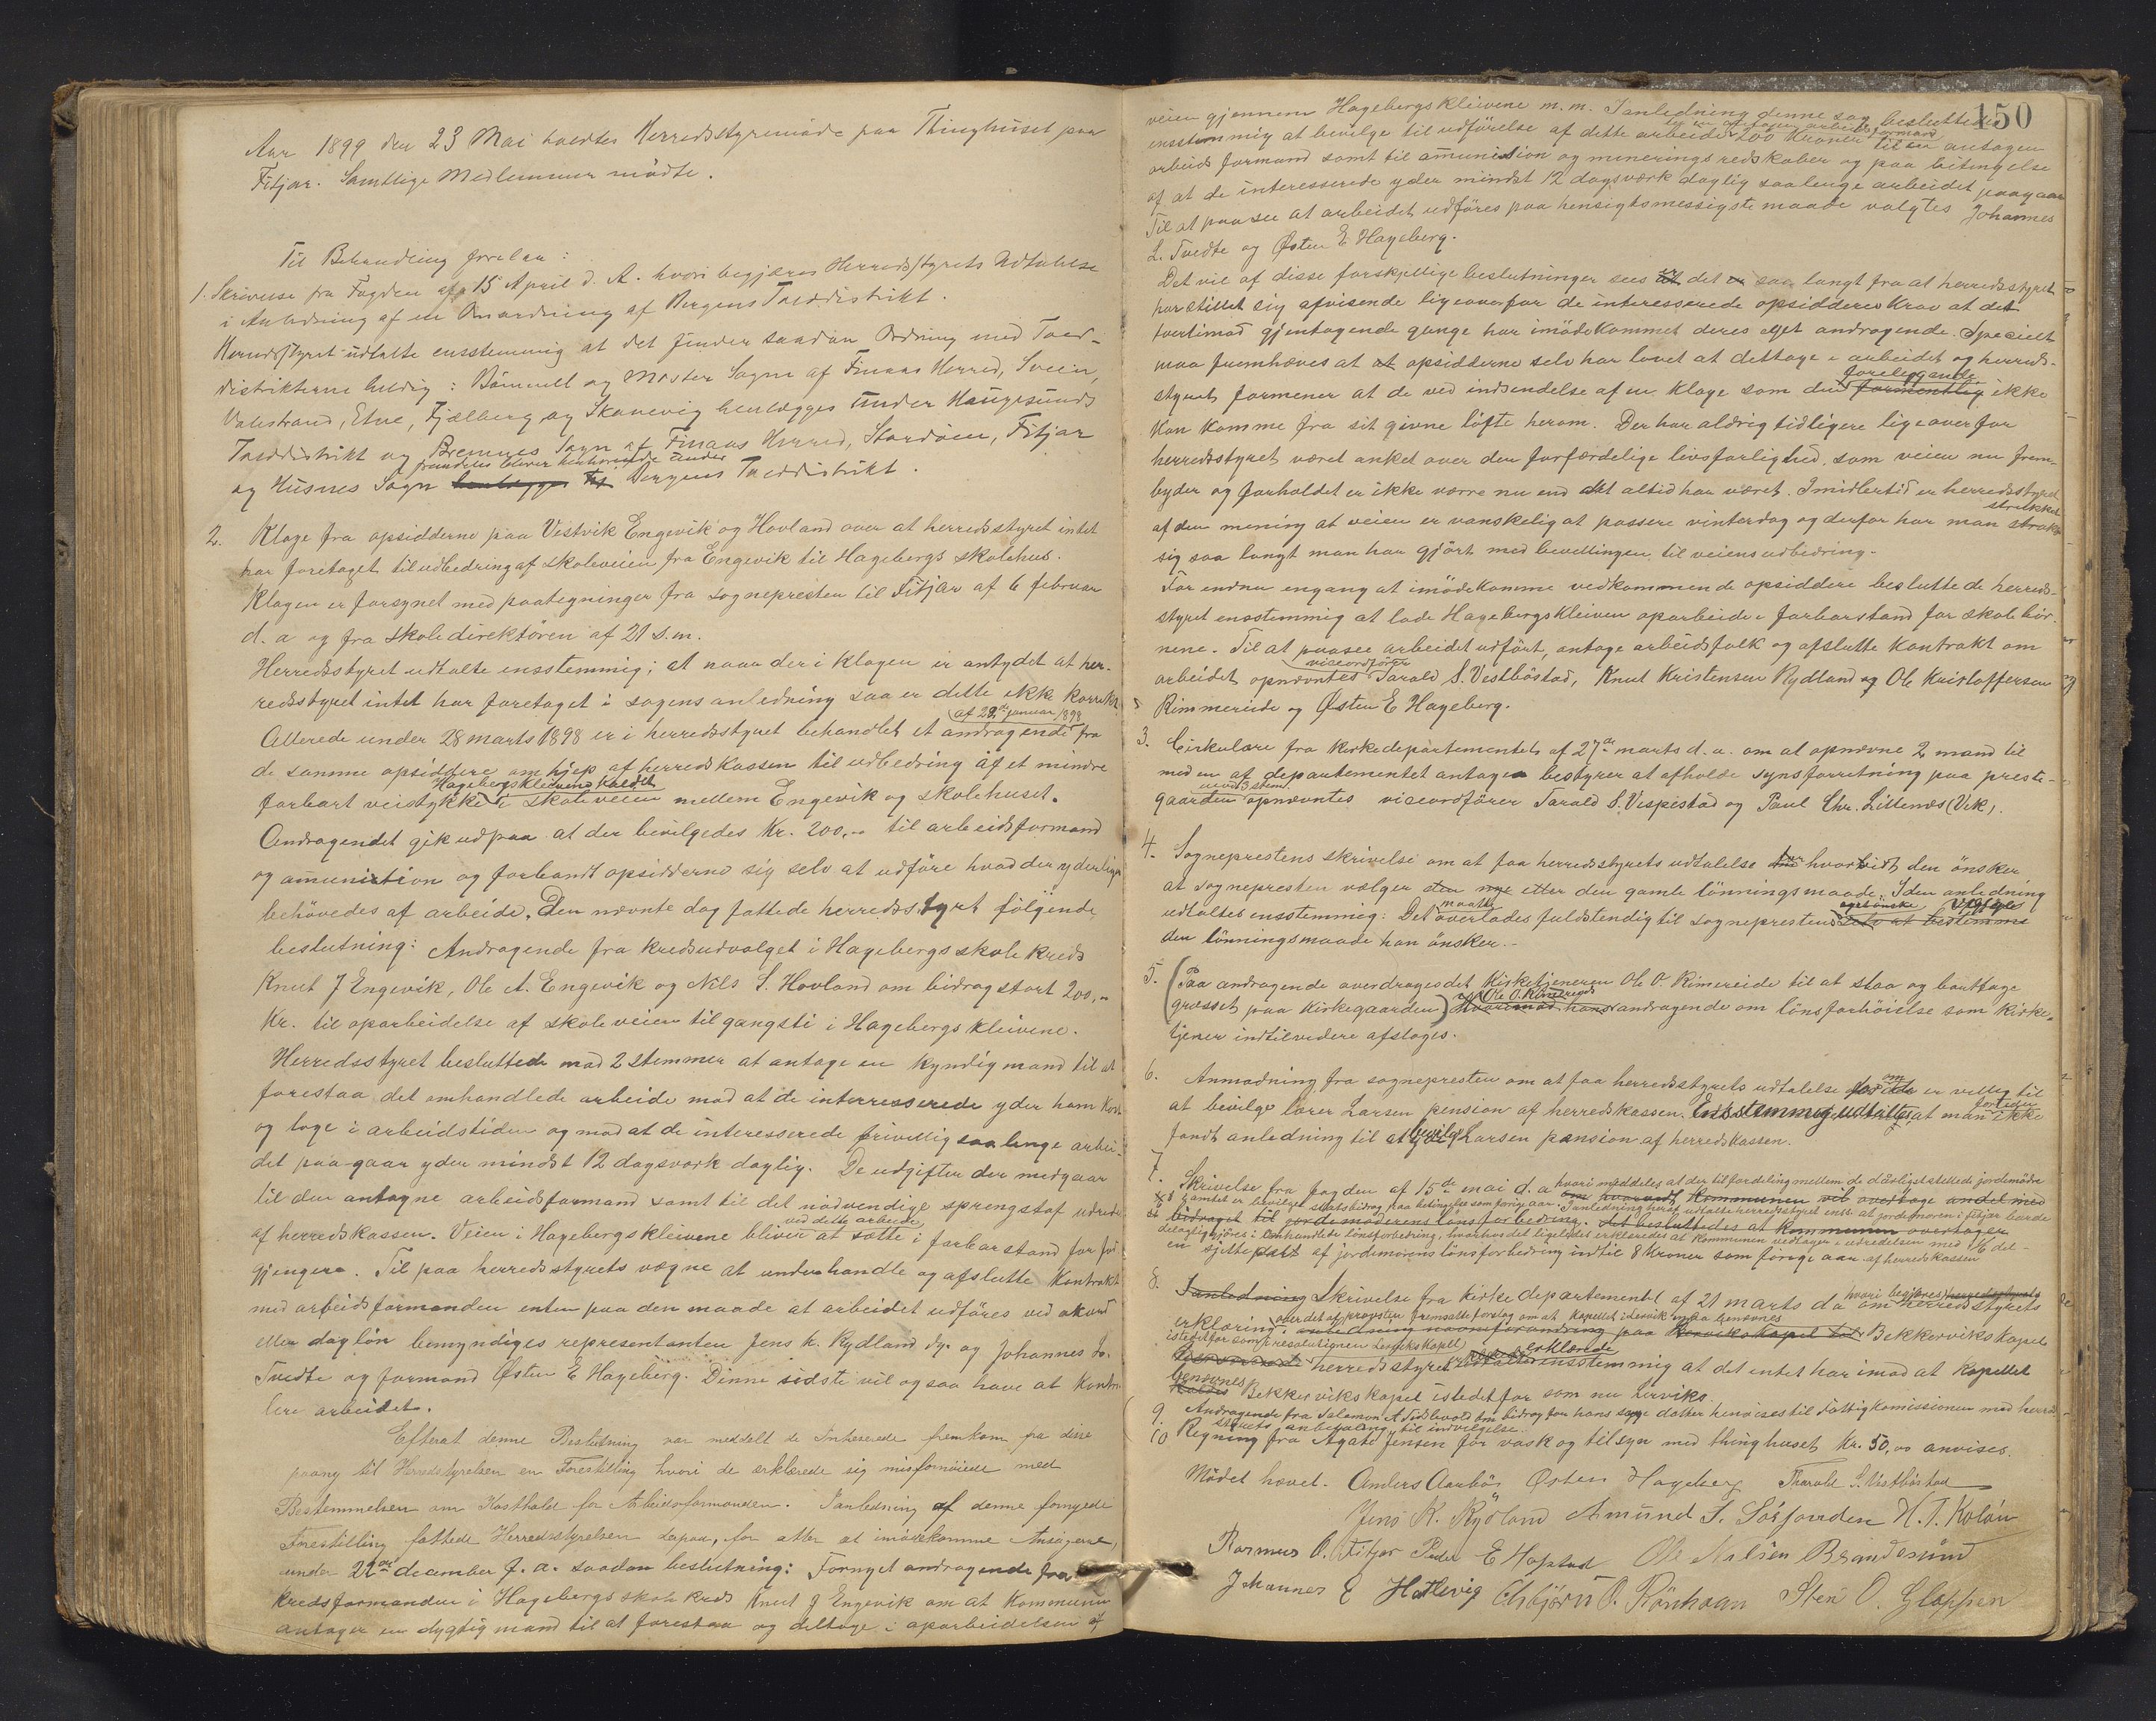 Aar 1899 den 23 Mai holdtes Herredsstyremøde paa Thinghuset paa
Fitjar. Samtlige Medlemmer mødte.
Til Behandling forelaa:
1. Skrivelse fra Fogden af 15 April d. A. hvori begjæres Herredsstyrets Udtalelse
i Anledning af en Omordning af Bergens Tolddistrikt.
Herredsstyret udtalte enstemmig at det finder saadan Ordning med Told-
distrikterne heldig: Bömmel og Moster Sogne af Finaas Herred, Sveen,
Valestrand, Etne, Fjælberg og Skonevig henlægges under Haugesunds
Tolddistrikt og Bremnes Sogn af Finaas Herred, Stordöen, Fitjar
fremdeles bliver henhørende under
og Husnes Sogn henlægges til Bergens Tolddistrikt.
2. Klage fra opsidderne paa Vestvik Engevik og Hovland over at herredsstyret intet
har foretaget til udbedring af skoleveien fra Engevik til Hagebergs skolehus.
Klagen er forsynet med paategninger fra sognepresten til Fitjar af 6 februar
d. a og fra skoledirektören af 21 s.m.
Herredsstyret udtalte ensstemmig; at naar der i klagen er antydet at her-
redsstyret intet har foretaget i sagens anledning saa er dette ikke korrekt.
af 28de januar 1898
Allerede under 28 marts 1898 er i herredsstyret behandlet et andragende fra
de samme opsiddere om hjep af herredskassen til udbedring af et mindre
Hagebergskleivene kaldet
farbart veistykke i skoleveien mellem Engevik og skolehuset.
Andragendet gik ud paa at der bevilgedes Kr. 200,- til arbeidsformand
og amunistion og forbandt opsidderne sig selv at udföre hvad der yderligere
behövedes af arbeide. Den nævnte dag fattede herredsstyret fölgende
beslutning: Andragende fra kredsudvalget i Hagebergs skolekreds
Knut J Engevik, Ole A. Engevik og Nils S. Hovland om bidrag stort 200,-
Kr. til oparbeidelse af skoleveien til gangsti i Hagebergs kleivene.
Herredsstyret besluttede mod 2 stemmer at antage en kyndig mand til at
forestaa det omhandlede arbeide mod at de interresserede yder ham kost
og loge i arbeidstiden og mod at de interesserede frivillig saa lenge arbei-
det paagaar yder mindst 12 dagsverk daglig. De udgifter der medgaar
til den antagne arbeidsformand samt til det nödvendige sprengstof udrede
af herredskassen. Veien i Hagebergskleivene bliver ved dette arbeide at sætte i farbar stand for fod
gjengere. Til paa herredsstyrets vegne at underhandle og afslutte kontrakt
med arbeidsformanden enten paa den maade at arbeidet udföres ved akord
eller daglön bemyndiges representanten Jens K. Rydland dy. og Johannes Jo.
Tvedte og formand Østen E Hageberg. Dinne sidste vil ogsaa have at kontro
lere arbeidet.
Efterat denne Beslutning var meddelt de Interesserede fremkom fra disse
paany til Herredsstyrelsen en Forestilling hvori de erklærede sig misfornøiede med
Bestemmelsen om Kosthold for Arbeidsformanden. I anledning af denne fornyede
Forestilling fattede Herredsstyrelsen derpaa, for atter at imødekomme Ansøgerne,
under 22de december f. a. saadan beslutning: Fornyet andragende fra
kredsformanden i Hagebergs skolekreds Knut J Engevik om at Kommunen
antager en dygtig mand til at forestaa og deltage i oparbeidelsen af
150
veien gjennem Hagebergskleivene m. m. I anledning denne sag besluttedes
ensstemmig at bevilge til udförelse af dette arbeide 200 Kroner til en antagen
arbeids formand samt til amunistion og mineringsredskaber og paa betingelse
af at de interesserede yder mindst 12 dagsverk daglig saalenge arbeidet paagaar
Til at paasee at arbeidet udföres paa hensigtsmessigste maade valgtes Johannes
L. Tvedte og Østen E Hageberg.
Det vil af disse forskjellige beslutninger sees at det er saa langt fra at herredsstyret
har stillet sig afvisende ligeoverfor de interesserede opsidderes krav at det
tvertimod gjentagende gange har imödekommet deres eget andragende. Specielt
maa fremhæves at at opsidderne selv har lovet at deltage i arbeidet og herreds-
foreliggende
styret formener at de ved indsendelse af en klage som den formentlig ikke
kan komme fra sit givne löfte herom. Der har aldrig tidligere ligeoverfor
herredsstyret været anket over den forfærdelige livsfarlighed, som veien nu frem-
byder og forholdet er ikke værre nu end det altid har været. Imidlertid er herredsstyret
strekket
af den mening at veien er vanskelig at passere vinterdag og derfor har man strakt
sig saa langt man har gjört med bevillingen til veiens udbedring.
For endnu engang at imödekomme vedkommende opsiddere besluttede herreds-
styret ensstemmig at lade Hagebergskleiven oparbeide i farbarstand for skolebör-
nene. Til at paasee arbeidet udfört, antage arbeidsfolk og afslutte kontrakt om
viceordförer
arbeidet opnævntes Tarald S. Vestböstad, Knut Kristensen Rydland og Ole Kristoffersen
Rimmereide og Østen E Hageberg.
3. Cirkulære fra kirkedepartementet af 27de marts d. a. om at opnævne 2 mand til
med en af departementet antagen bestyrer at afholde synsforretning paa preste-
gaarden opnævntes viceordförer Tarald S. Vespestad og Paul Chr. Lillenæs (Vik).
4. Sogneprestens skrivelse om at faa herredsstyrets udtalelse om hvorvidt den önsker
at sognepresten vælger den nye etter den gamle lönningsmaade. I den anledning
maatte eget önske
udtaltes ensstemmig: Det overlades fuldstendig til sogneprestens selv at bestemme
den lönningsmaade han önsker.-
5. (Paa andragende overdrages det kirketjeneren Ole O. Rimereide til at slaa og borttage
Ole O. Rimereides
græsset paa kirkegaarden) hvorimod hans andragende om lönsforhöielse som kirke-
tjener indtilvidere afslages.
6. Anmodning fra sognepresten om at faa herredsstyrets udtalelse om det er villig til
fortiden
at bevilge lærer Larsen pension af herredskassen. Ensstemmig udtaltes, at man ikke
fandt anledning til at bevilge Larsen pension af herredskassen.
7. Skrivelse fra fogden af 15de mai d. a hvori meddeles at der til fordeling mellem de dårligst stillede jordmödre
om hvorvidt Kommunen vil overtage andel med
i amtet er bevilget statsbidrag paa betingelse som forrige aar. I anledning heraf udtalte herredsstyret enss. at jordemoren i fitjar burde
bidraget til jordemoderens löns forbedring. Det besluttedes at Kommunen overtager
delagtiggjöres i omhandlede lönsforbedring, hvorhos det ligeledes erklæredes at kommunen vedtager udredelsen med 1/6 del-
en sjette part af jordemorens lönsforbedring indtil 8 kroner som forige aar af herredskassen
8. I anledning Skrivelse fra kirkedepartementet af 21 marts d a hvori begjæres om herredsstyrets
erklæring over det af provsten fremsatte forslag om at kapellet i Lervik maa benævnes
anledning navneforandring paa Lerviks kapel til Bekkerviks kapel
istedetfor som i resolutionen Lerviks kapel
herredsstyret erklærede ensstemmig at det intet har imod at kapellet
benævnes
kaldes Bekkerviks kapel istedetfor som nu Lerviks
9. Andragende fra Salomon A Tislevold om bidrag for hans syge datter henvises til fattigkomissionen med herred-
styrets anbefaling til indvilgelse.
10 Regning fra Agate Jensen for vask og tilsyn med thinghuset Kr. 50,00 anvises.
Mödet hævet. Anders Aarbö, Østen Hageberg Tharald S. Vestböstad
Jens K. Rydland Amund T. Sörfonden H. T. Koløin
Rasmus O. Fitjar Peder E Hopstad Ole Nilsen Brandesund
Johannes E Hatlevig Asbjörn O. Rönhaan Sten O. Gloppen